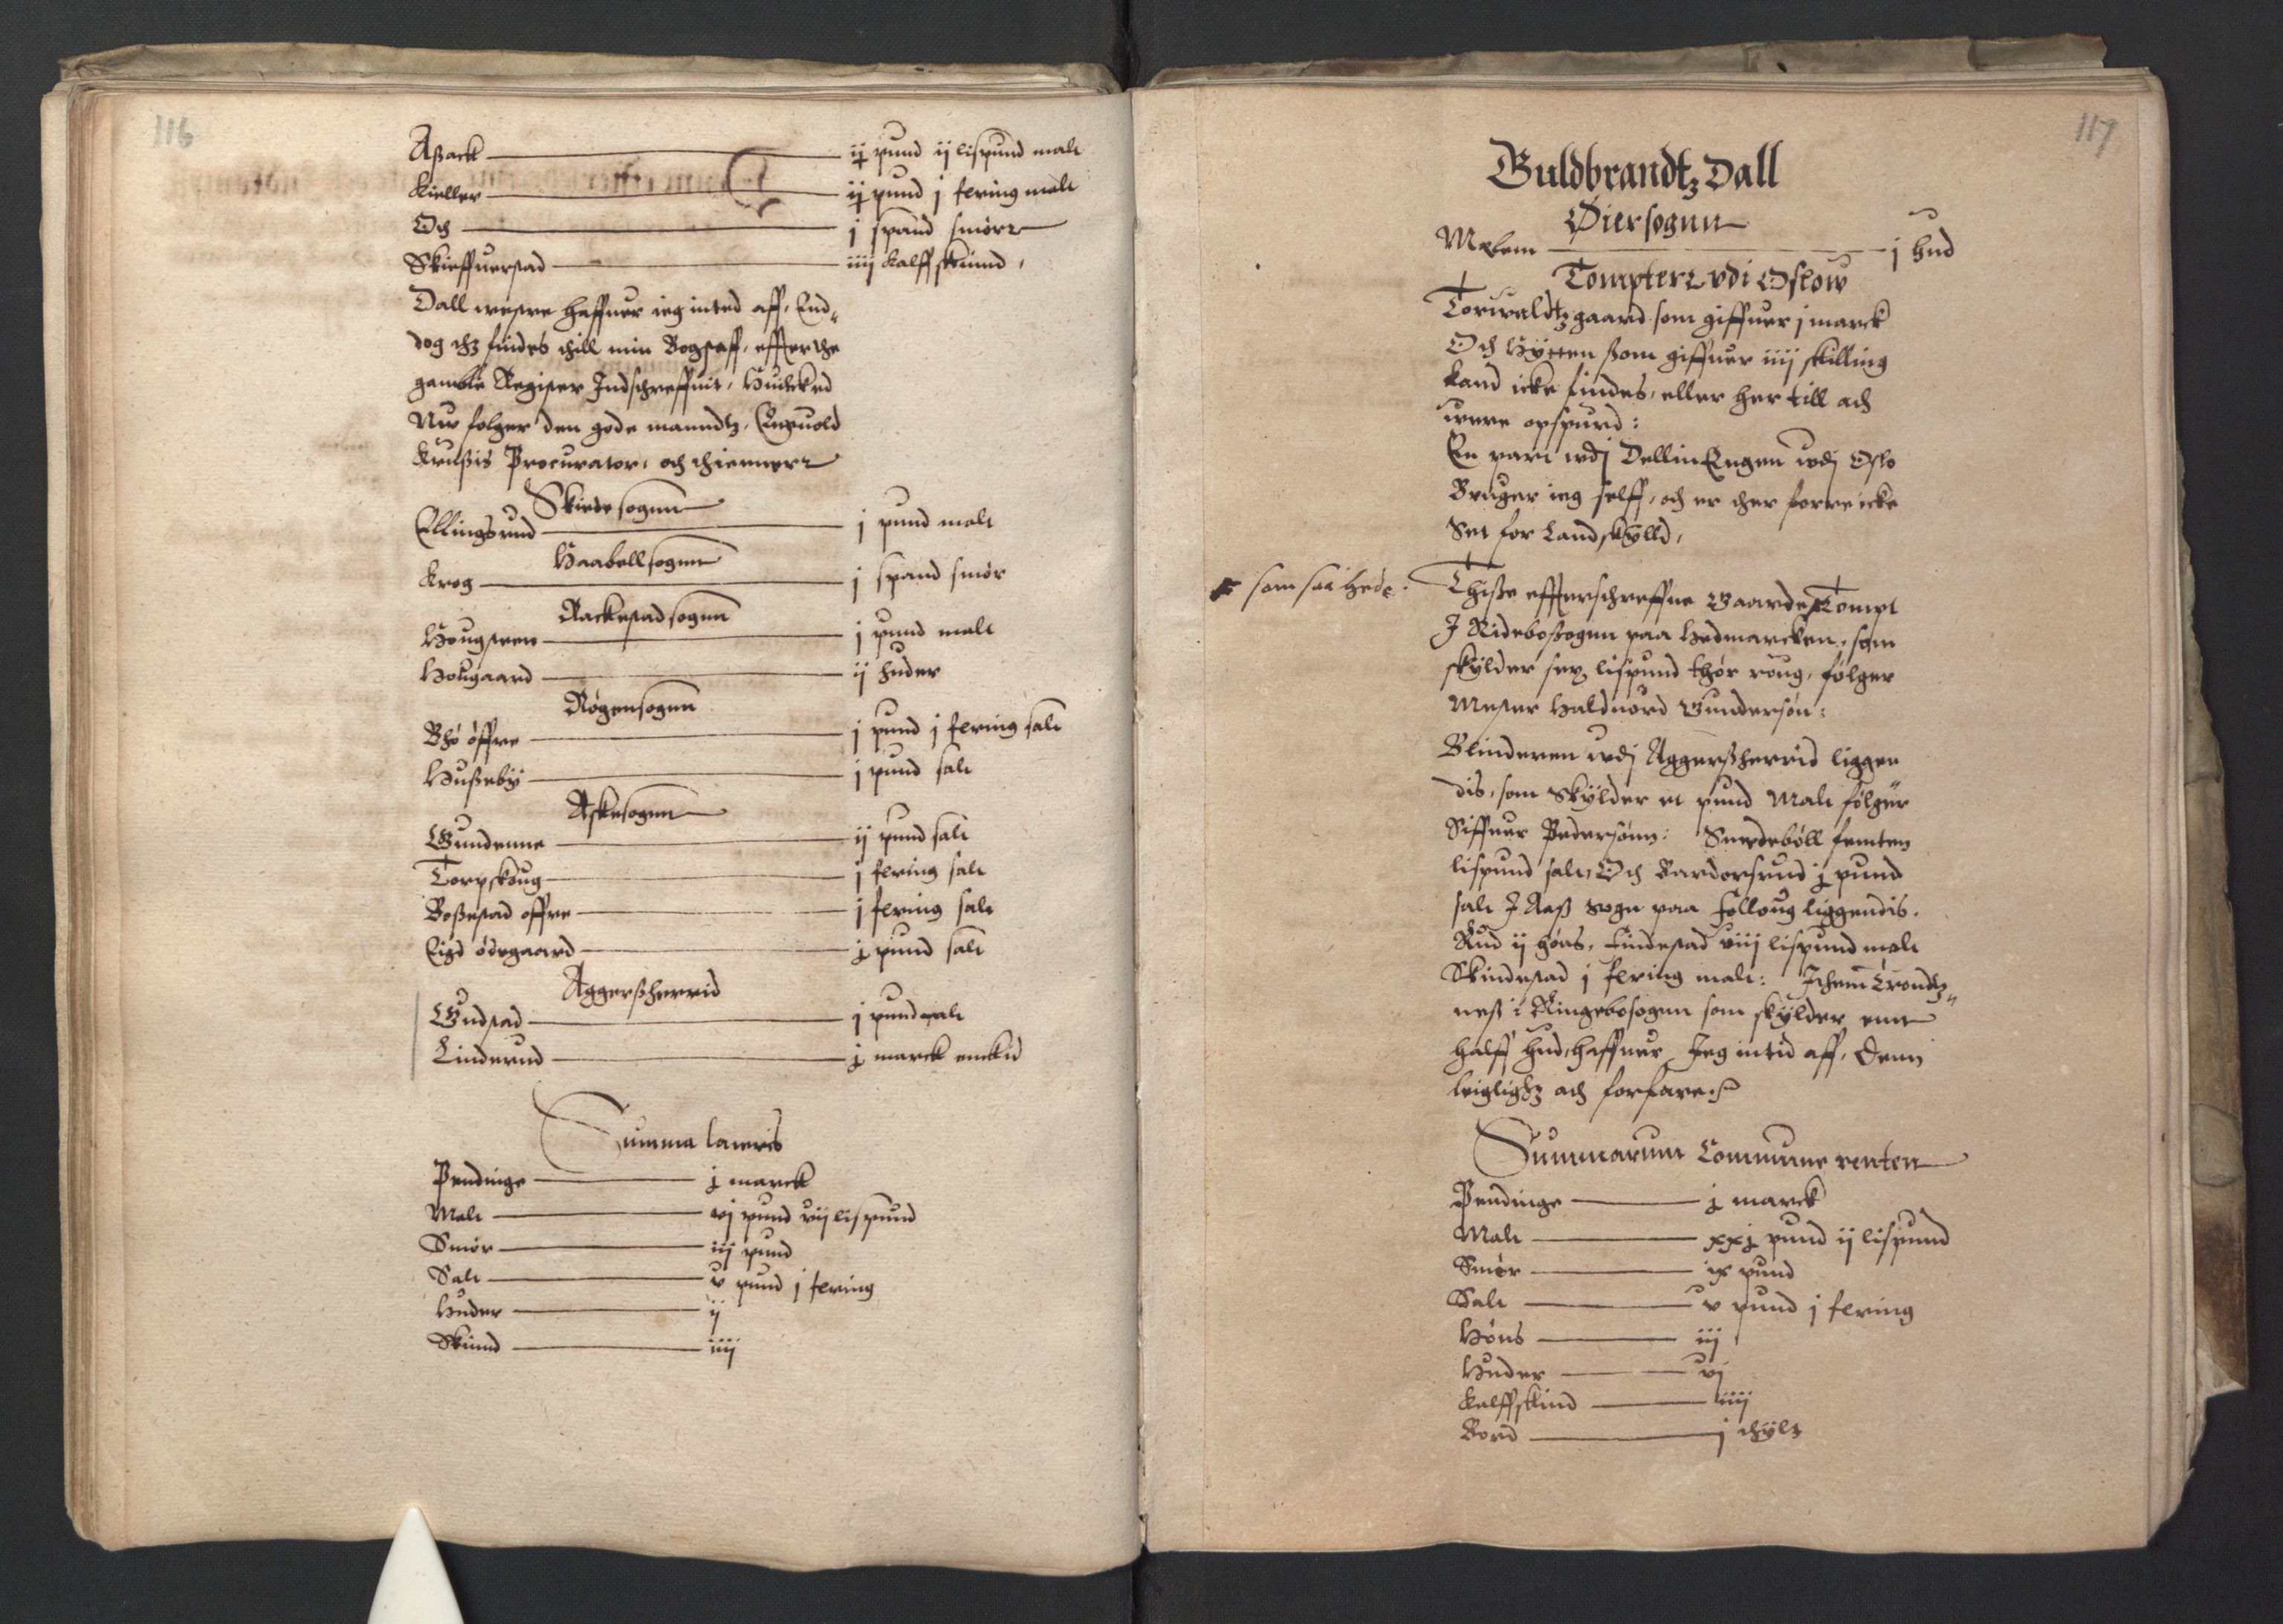 116
Aßack — ij pund ij lispund malt
Kieller — ij pund j fering malt
Och — j spand smørr
Skieffuerstad — iiij kalff skind,
Dall westre haffuer ieg inted aff, End„
dog thz findes thill min Bogstaff, effter the
gamble Register Indschreffuit, Huilcked
Nw folger den gode manndtz, Enuold
Krußis Procurator, och thiennere
Skiedesognn
Ellingsrud — j pund malt
Haabollsognn
Krog — j spand smør
Rackestad sognn
Hougsten — j pund malt
Hougaard — ij huder
Røgensognn
Bhø øffre — j pund j fering salt
Hußeby — j pund salt
Askesognn
Gundenne — ij pund salt
Torpskoug — j fering salt
Boßestad offre — j fering salt
Eigd ødegaard — j pund salt
Aggerßherrid
Gudstad — j pund malt
Linderud — j marck enckid
Summa lateris
Pendinge — j marck
Malt — vj pund vij lispund
Smør — iij pund
Salt — v pund j fering
Huder — ij
Skiind — iiij
117
Guldbrandtz Dall
Øiersognn
Mælem — j hud
Tompter vdi Oslow
Torualdtzgaard som giffuer j marck
Och Hytten ßom giffuer iiij skilling
kand icke findes, eller her till ath
were opspurd:
En part wdj Dellin Engen wdj Oslo
Bruger ieg self, och er ther forre icke
Set for Landskylld,
som saa hede:
Thiße effterschreffne Gaarde Tompt
J Ridebosogun paa Hedmarcken, som
skylder sex lispund thør roug, følger
Mester Haldnord Gundersøn:
Blinderen wdj Aggerßherrid liggen
dis, som skylder et pund Malt følger
Siffuer Pedersønn: Smedebøll femten
lispund salt, Och Bardorsrud j pund
salt J Aaß sogn paa Folloug liggendis.
Rud ij høns, Findestad viij lispund malt
Skindestad j fering malt: Jthem Trondtz„
neß i Ringebosogun som skylder enn
halff hud, haffuer Jeg intid aff, Denn
leiglighz ath forfare
Summarum Commune renten
Pendinge — j marck
Malt — xxj pund ij lispund
Smør — ix pund
Salt — v pund j fering
Høns — iij
Huder — vj
Kalffskind — iiij
Bord — j thylt